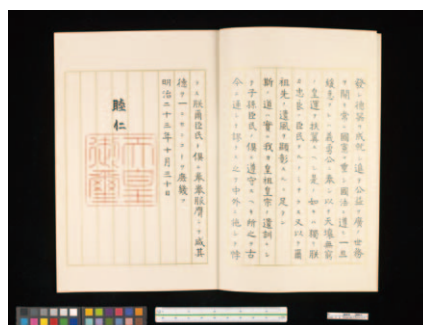 發シ德器ヲ成就シ進テ公益ヲ廣メ世務
ヲ開キ常ニ國憲ヲ重シ國法ニ遵ヒ一旦
緩急アレハ義勇公ニ奉シ以テ天壤無窮
ノ皇運ヲ扶翼スヘシ是ノ如キハ獨リ朕
カ忠良ノ臣民タルノミナラス又以テ爾
祖先ノ遺風ヲ顯彰スルニ足ラン
斯ノ道ハ實ニ我カ皇祖皇宗ノ遺訓ニシ
テ子孫臣民ノ俱ニ遵守スヘキ所之ヲ古
今ニ通シテ謬ラス之ヲ中外ニ施シテ悖
ラス朕爾臣民ト俱ニ拳々服膺シテ咸其
德ヲ一ニセンコトヲ庶幾フ
明治二十三年十月三十日
睦仁
天皇
御璽